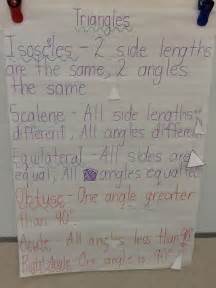 Triangles
Isosciles - 2 side lengths
are the same, 2 angles
the same
Scalene - All side lengths
different, All angles different
Equilateral - All sides are
equal, All angles equal
Obtuse - One angle greater
than 90°
Acute - All angles less than 90°
Right Angle - One angle is 90°